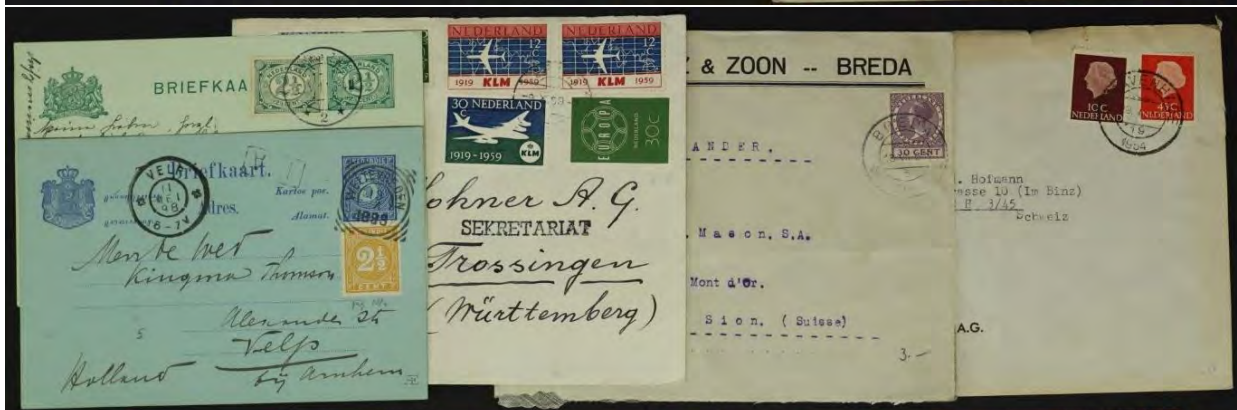 BRIEFKAA
2½
2½
2
Briefkaart.
Kartoe pos.
Adres.
Alamat.
VELP
11
98
6-7V
WELTEVREDEN
1898
2½
CENT
Mevr de Wed
Kingma Thomson
Alexander Str
Velp
bij Arnhem
Holland
5
NEDERLAND
12 C
1919 KLM 1959
NEDERLAND
12 C
1919 KLM 1959
30 NEDERLAND
C
1919-1959 KLM
EUROPA
NEDERLAND
30C
Hohner A.G.
SEKRETARIAT
Trossingen
(Württemberg)
& ZOON -- BREDA
30 CENT
ANDER.
. Macon, S.A.
Mont d'Or.
Sion. (Suisse)
3.-
10C
NEDERLAND
45C
NEDERLAND
19
1954
. Hofmann
asse 10 (Im Binz)
H. 3/45
Schweiz
A.G.